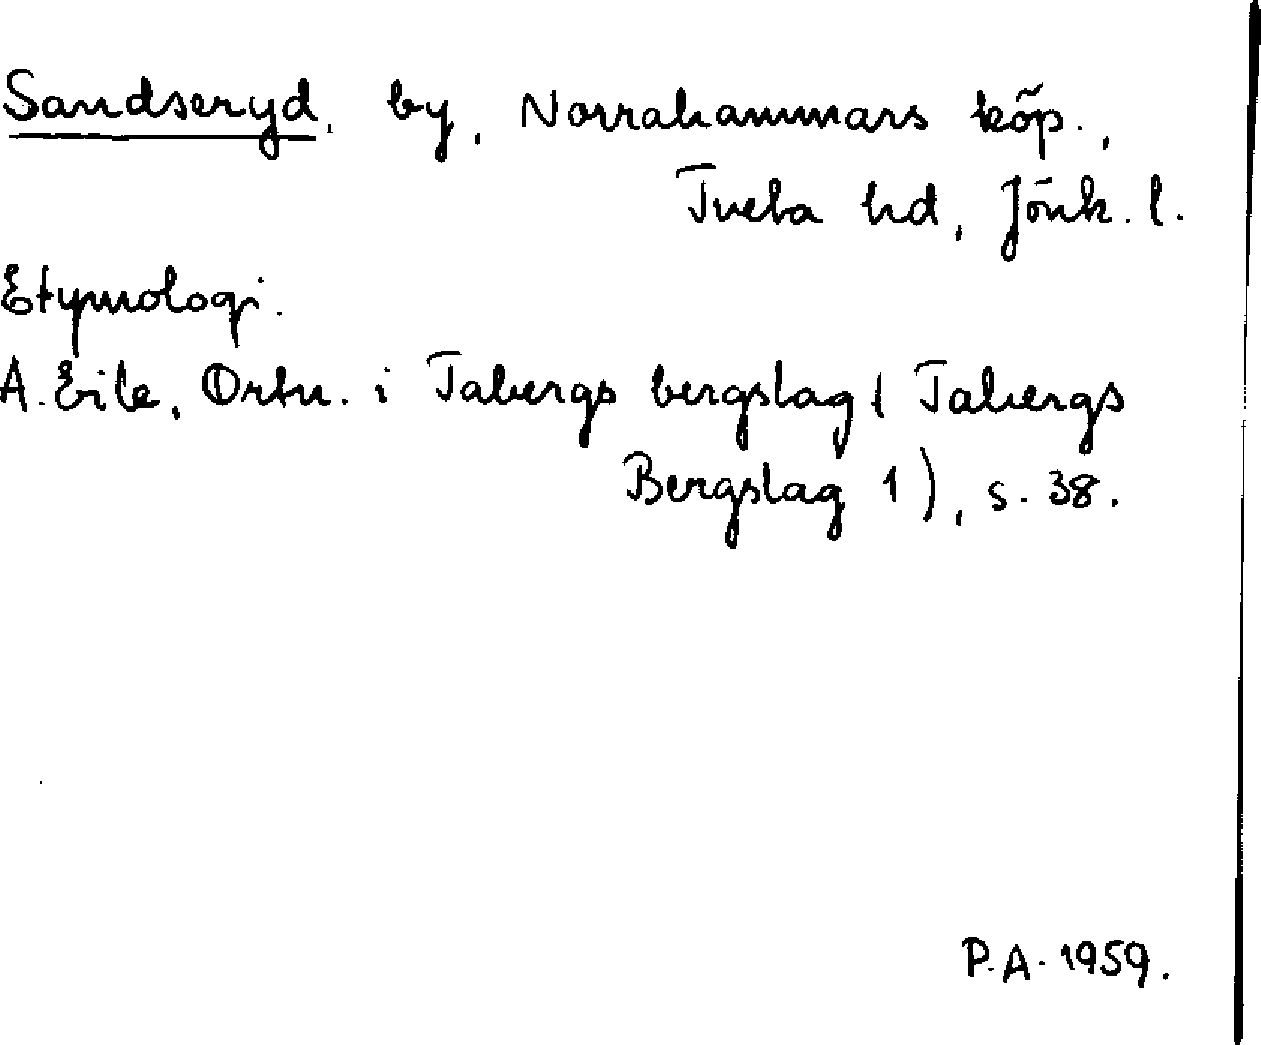 Sandseryd, by, Norrahammars köp.,
Tveta hd, Jönk. l.
Etymologi.
A. Eile, Ortn. i Tabergs bergslag (Tabergs
Bergslag 1), s. 38.
P.A. 1959.